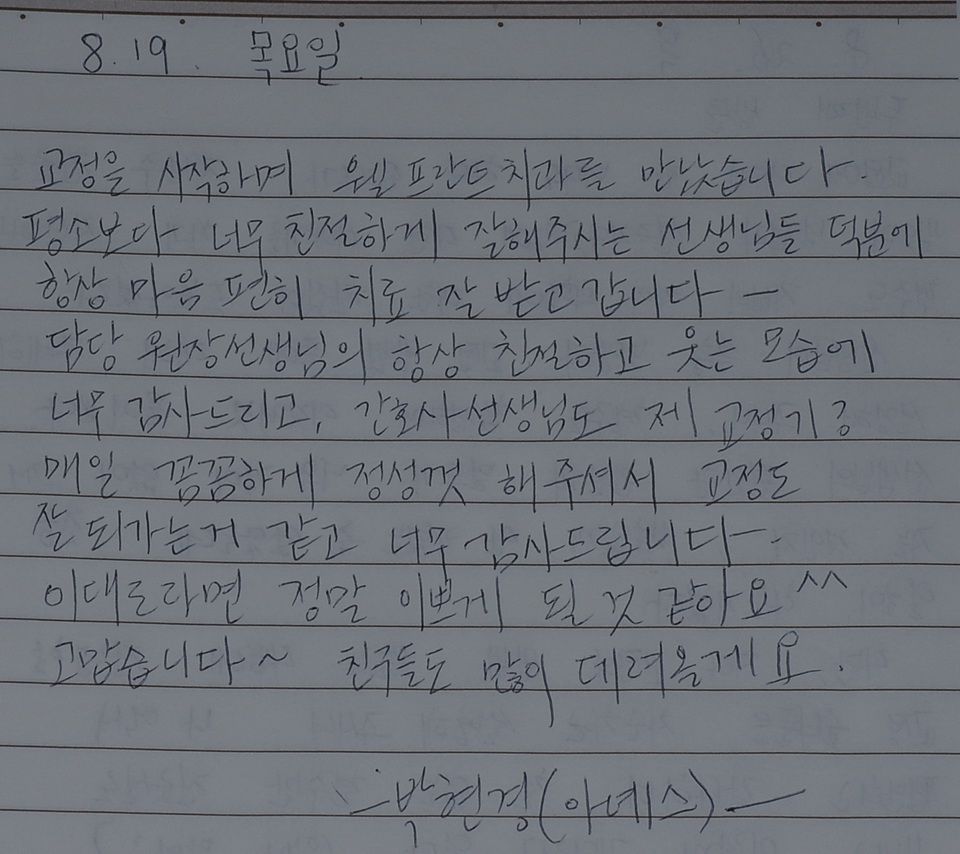 8.19. 목요일
교정을 시작하며 웰프란트치과를 만났습니다.
평소보다 너무 친절하게 잘해주시는 선생님들 덕분에
항상 마음 편히 치료 잘 받고갑니다-
담당 원장선생님의 항상 친절하고 웃는 모습에
너무 감사드리고, 간호사선생님도 제 교정기
매일 꼼꼼하게 정성껏 해주셔서 교정도
잘 되가는거 같고 너무 감사드립니다-.
이대로라면 정말 이쁘게 될 것 같아요^^
고맙습니다~ 친구들도 많이 데려올게요.
-박현경(아녜스)-